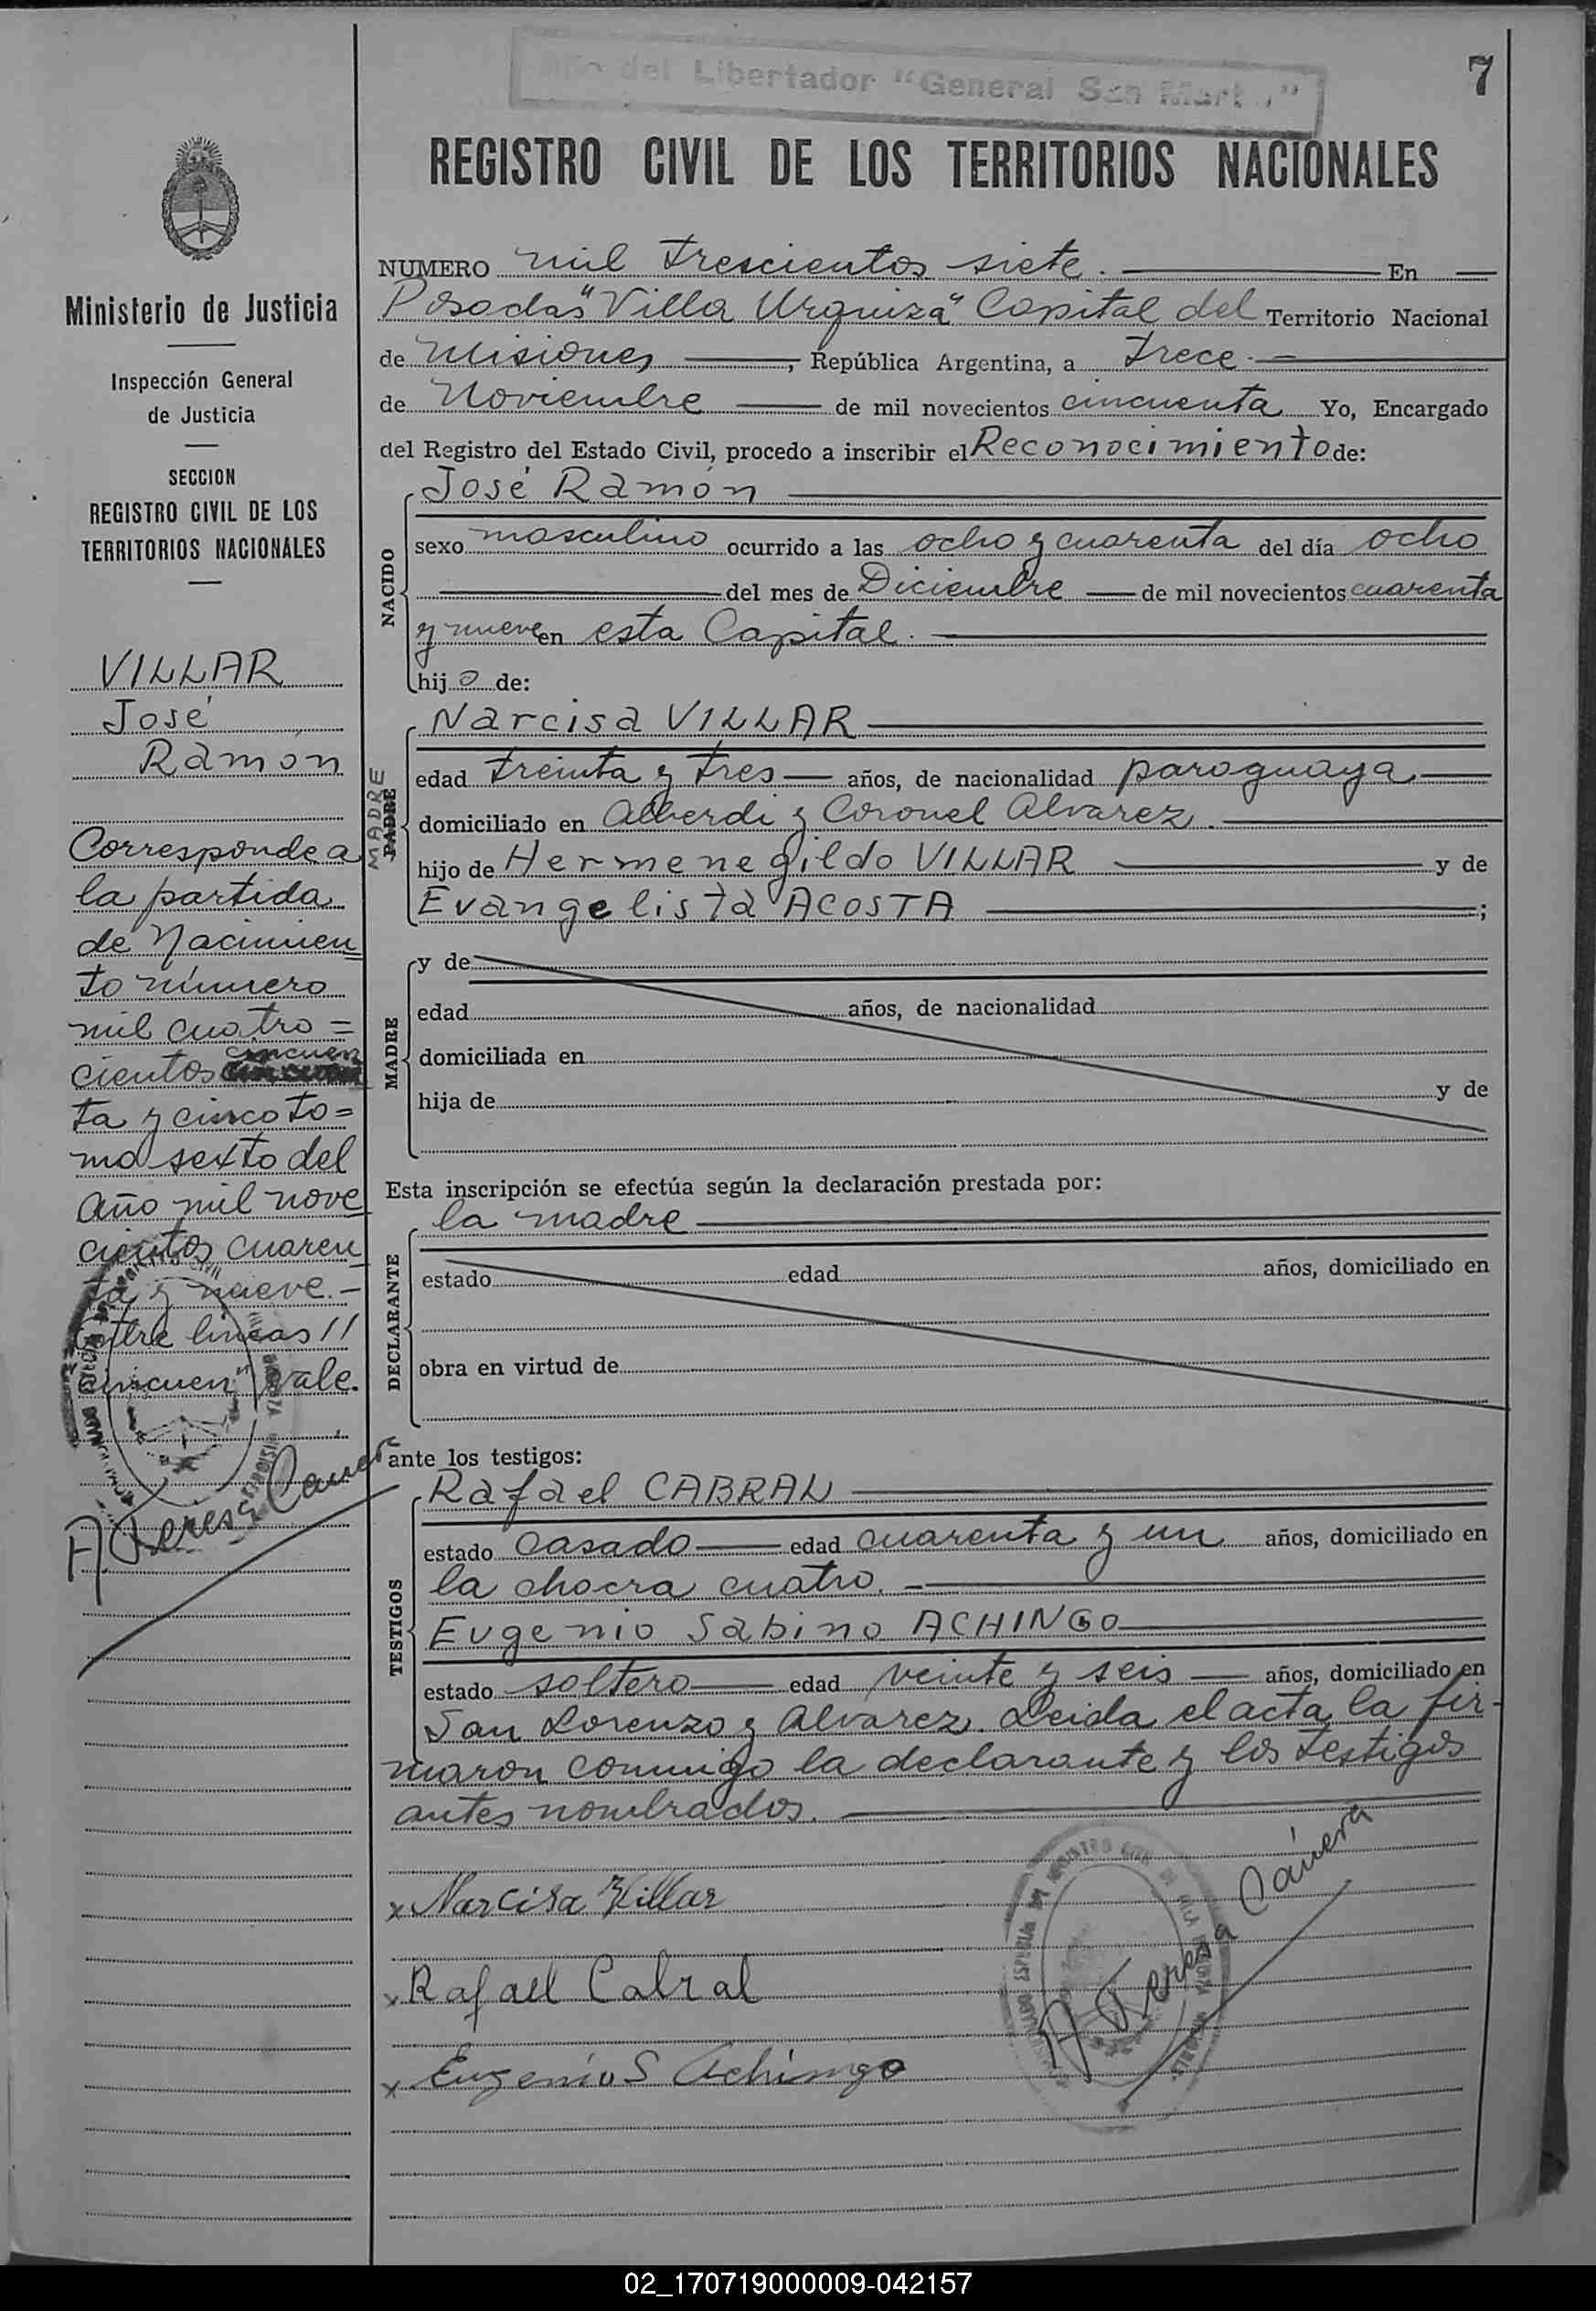 Año del Libertador "General San Mart
7
REGISTRO CIVIL DE LOS TERRITORIOS NACIONALES
Ministerio de Justicia
Inspección General
de Justicia
SECCION
REGISTRO CIVIL DE LOS
TERRITORIOS NACIONALES
VILLAR
José
Ramón
Corresponde a
la partida
de Nacimien
to número
mil cuatro =
cincuen
cientos
ta y cinco to=
mo sexto del
año mil nove
cientos cuaren
ta y nueve.-
Entre lineas "
cincuen" vale.
NUMERO mil trescientos siete. En
Posadas "Villa Urquiza" Capital del Territorio Nacional
de Misiones, República Argentina, a trece.-
de Noviembre de mil novecientos cincuenta Yo, Encargado
del Registro del Estado Civil, procedo a inscribir el Reconocimiento de:
NACIDO
José Ramón
sexo masculino ocurrido a las ocho y cuarenta del día ocho
del mes de Diciembre de mil novecientos cuarenta
y nueve en esta Capital.
hijo de:
MADRE
PADRE
Narcisa VILLAR
edad treinta y tres años, de nacionalidad paraguaya.
domiciliado en Alberdi y Coronel Alvarez.
hijo de Hermenegildo VILLAR y de
Evangelista ACOSTA ;
MADRE
y de
edad años, de nacionalidad
domiciliada en
hija de y de
Esta inscripción se efectúa según la declaración prestada por:
DECLARANTE
la madre
estado edad años, domiciliado en
obra en virtud de
ante los testigos:
TESTIGOS
Rafael CABRAL
estado casado edad cuarenta y un años, domiciliado en
la chacra cuatro.-
Eugenio Sabino ACHINGO
estado soltero edad veinte y seis años, domiciliado en
San Lorenzo y Alvarez. Leida el acta, la fir-
maron conmigo la declarante y los testigos
antes nombrados.
x Narcisa Villar
x Rafael Cabral
x Eugenio S Achingo
02_170719000009-042157